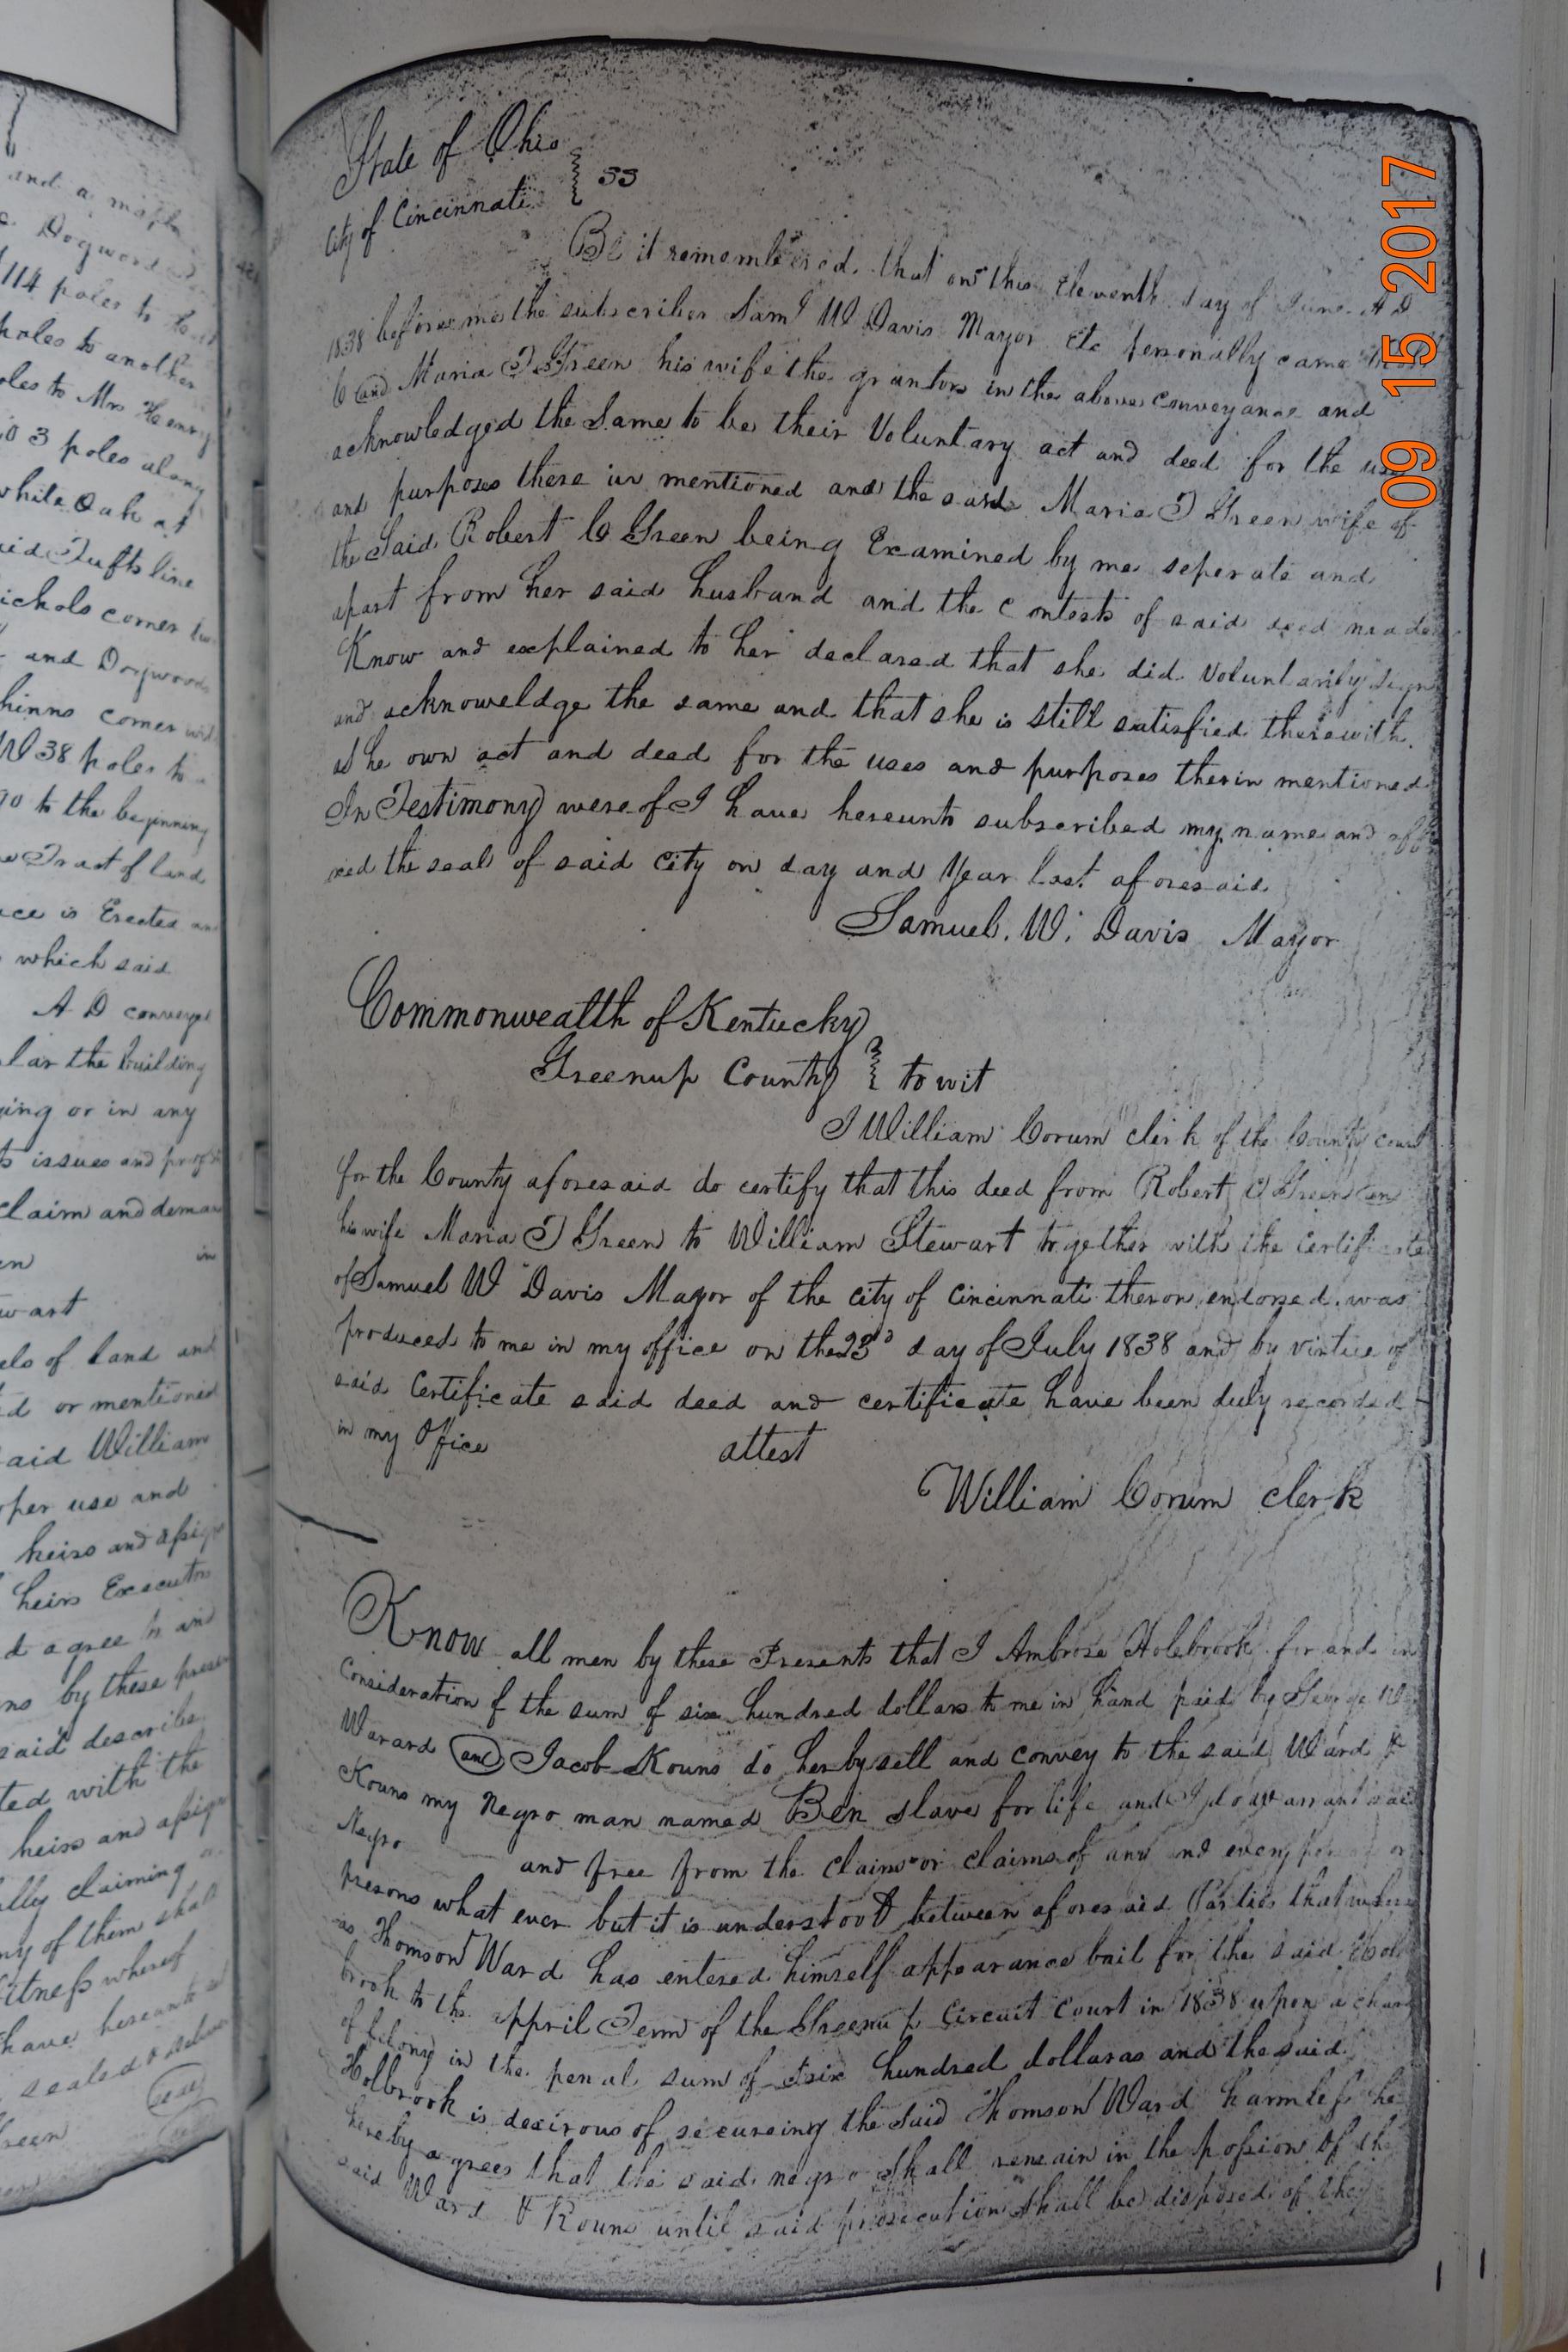 and a
Dogwood
114 poles to
poles to another
oles to Mrs Henry
3 poles along
white Oak at
aid Tufts line
ichols corner
and Dogwood
hinns corner
W 38 poles to
90 to the beginning
Tract of land
ace is Erected
which said
A D
lar the building
ying or in any
issues and
claim and
en in
wart
els of land and
ed or mentioned
said William
oper use and
heirs and assigns
heirs Executors
agree to and
by these
said describe
ted with the
heirs and
ally claiming
ny of them shall
Witness whereof
have hereunto
sealed &
seal
reen
State of Ohio
City of Cincinnati } SS
Be it remembered that on this Eleventh day of June A D
1838 before me the subscriber Saml W Davis Mayor Etc personally came
C and Maria T Green his wife the grantors in the above conveyance and
acknowledged the Same to be their Voluntary act and deed for the uses
and purposes there in mentioned and the said Maria T Green wife of
the Said Robert C Green being Examined by me seperate and
apart from her said husband and the Contests of said deed made
Know and explained to her declared that she did Voluntarily sign
and acknoweldge the same and that she is still satisfied therewith
as he own act and deed for the uses and purposes therin mentioned
In Testimony wereof I have hereunto subscribed my name and aff
ixed the seal of said City on day and Year last aforesaid
Samuel. W. Davis Mayor
Commonwealth of Kentucky
Greenup County } to wit
I William Corum clerk of the County court
for the County aforesaid do certify that this deed from Robert C Green and
his wife Maria T Green to William Stewart together with the Certificate
of Samuel W Davis Mayor of the city of Cincinnati theron endorsed was
produced to me in my office on the 23d day of July 1838 and by virtue of
said Certificate said deed and certificate have been duly recorded
in my Office attest
William Corum clerk
Know all men by these Presents that I Ambrose Holebrook for and in
Consideration f the sum of six hundred dollars to me in hand paid by George W
Warard and Jacob Kouns do herby sell and convey to the said Ward &
Kouns my Negro man named Ben slave for life and I do warrant said
Negro and free from the claim or claims of any and every person or
presons what ever but it is understood between aforesaid Parties that where
as Thomson Ward has entered himself appearance bail for the said Hol
brook to the appril Term of the Greenup Circuit Court in 1838 upon a charg
of felony in the penal sum of six hundred dollaras and the said
Holbrook is desirous of secureing the Said Thomson Ward harmless he
hereby agrees that the said negro shall remain in the possion of the
said Ward & Kouns until said prosecution shall be disposed of they
09 15 2017